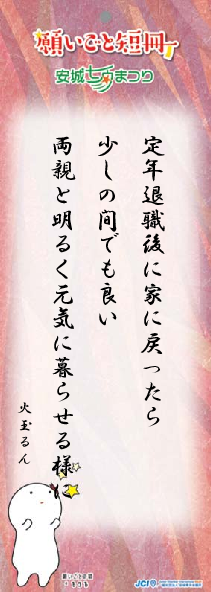 願いごと短冊
安城七夕まつり
定年退職後に家に戻ったら
少しの間でも良い
両親と明るく元気に暮らせる様に
火玉るん
願いごと短冊
JCI